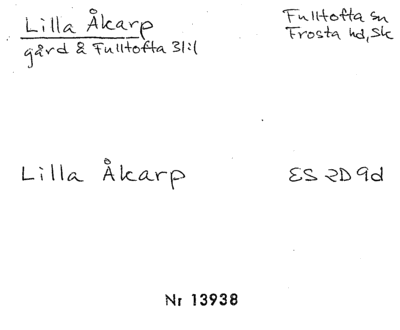 Lilla Åkarp
gård å Fulltofta 31:1
Fulltofta sn
Frosta hd, Sk
Lilla Åkarp
ES 2D 9d
Nr 13938